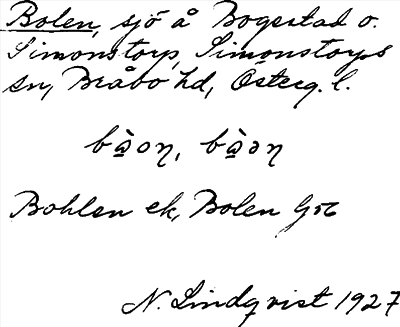 Bolen, sjö å Bogestad o.
Simonstorp, Simonstorps
sn, Bråbo hd, Österg. l.
Bohlen ek, Bolen Gök
N. Lindqvist 1927